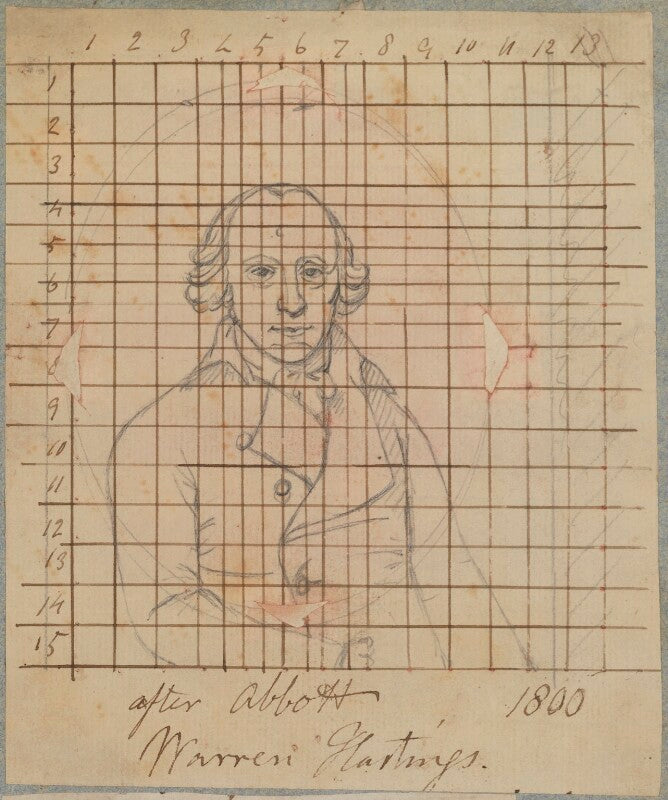 1 2 3 4 5 6 7 8 9 10 11 12 13
1
2
3
4
5
6
7
8
9
10
11
12
13
14
15
after Abbott 1800
Warren Hastings.